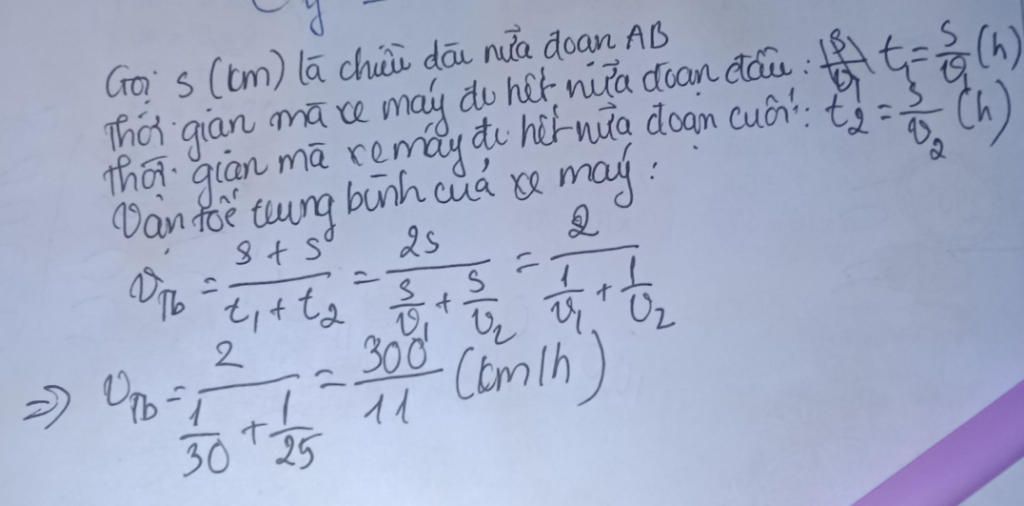 Gọi s (km) là chiều dài nửa đoạn AB
Thời gian mà xe máy đi hết nửa đoạn đầu: t₁ = s/v₁ (h)
Thời gian mà xe máy đi hết nửa đoạn cuối: t₂ = s/v₂ (h)
Vận tốc trung bình của xe máy:
v_Tb = (s + s)/(t₁ + t₂) = 2s/(s/v₁ + s/v₂) = 2/(1/v₁ + 1/v₂)
=> v_Tb = 2/(1/30 + 1/25) = 300/11 (km/h)